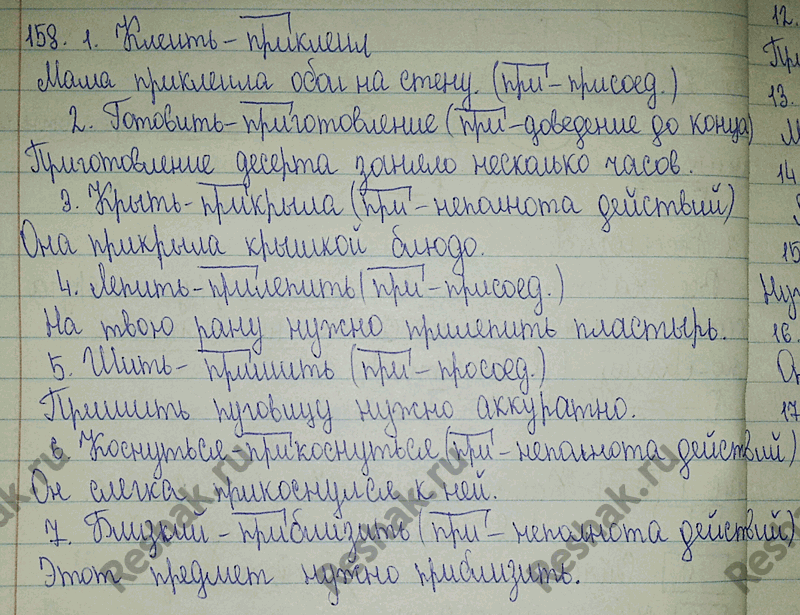 158. 1. Клеить - приклеил
Мама приклеила обои на стену. (при - присоед.)
2. Готовить - приготовление (при - доведение до конца)
Приготовление десерта заняло несколько часов.
3. Крыть - прикрыла (при - неполнота действий)
Она прикрыла крышкой блюдо.
4. Лепить - прилепить (при - присоед.)
На твою рану нужно прилепить пластырь.
5. Шить - пришить (при - просоед.)
Пришить пуговицу нужно аккуратно.
6. Коснуться - прикоснуться (при - неполнота действий)
Он слегка прикоснулся к ней.
7. Близкий - приблизить (при - неполнота действий)
Этот предмет нужно приблизить.
12.
13.
14
15
16.
17
Reshak.ru
Reshak.ru
Reshak.ru
Reshak.ru